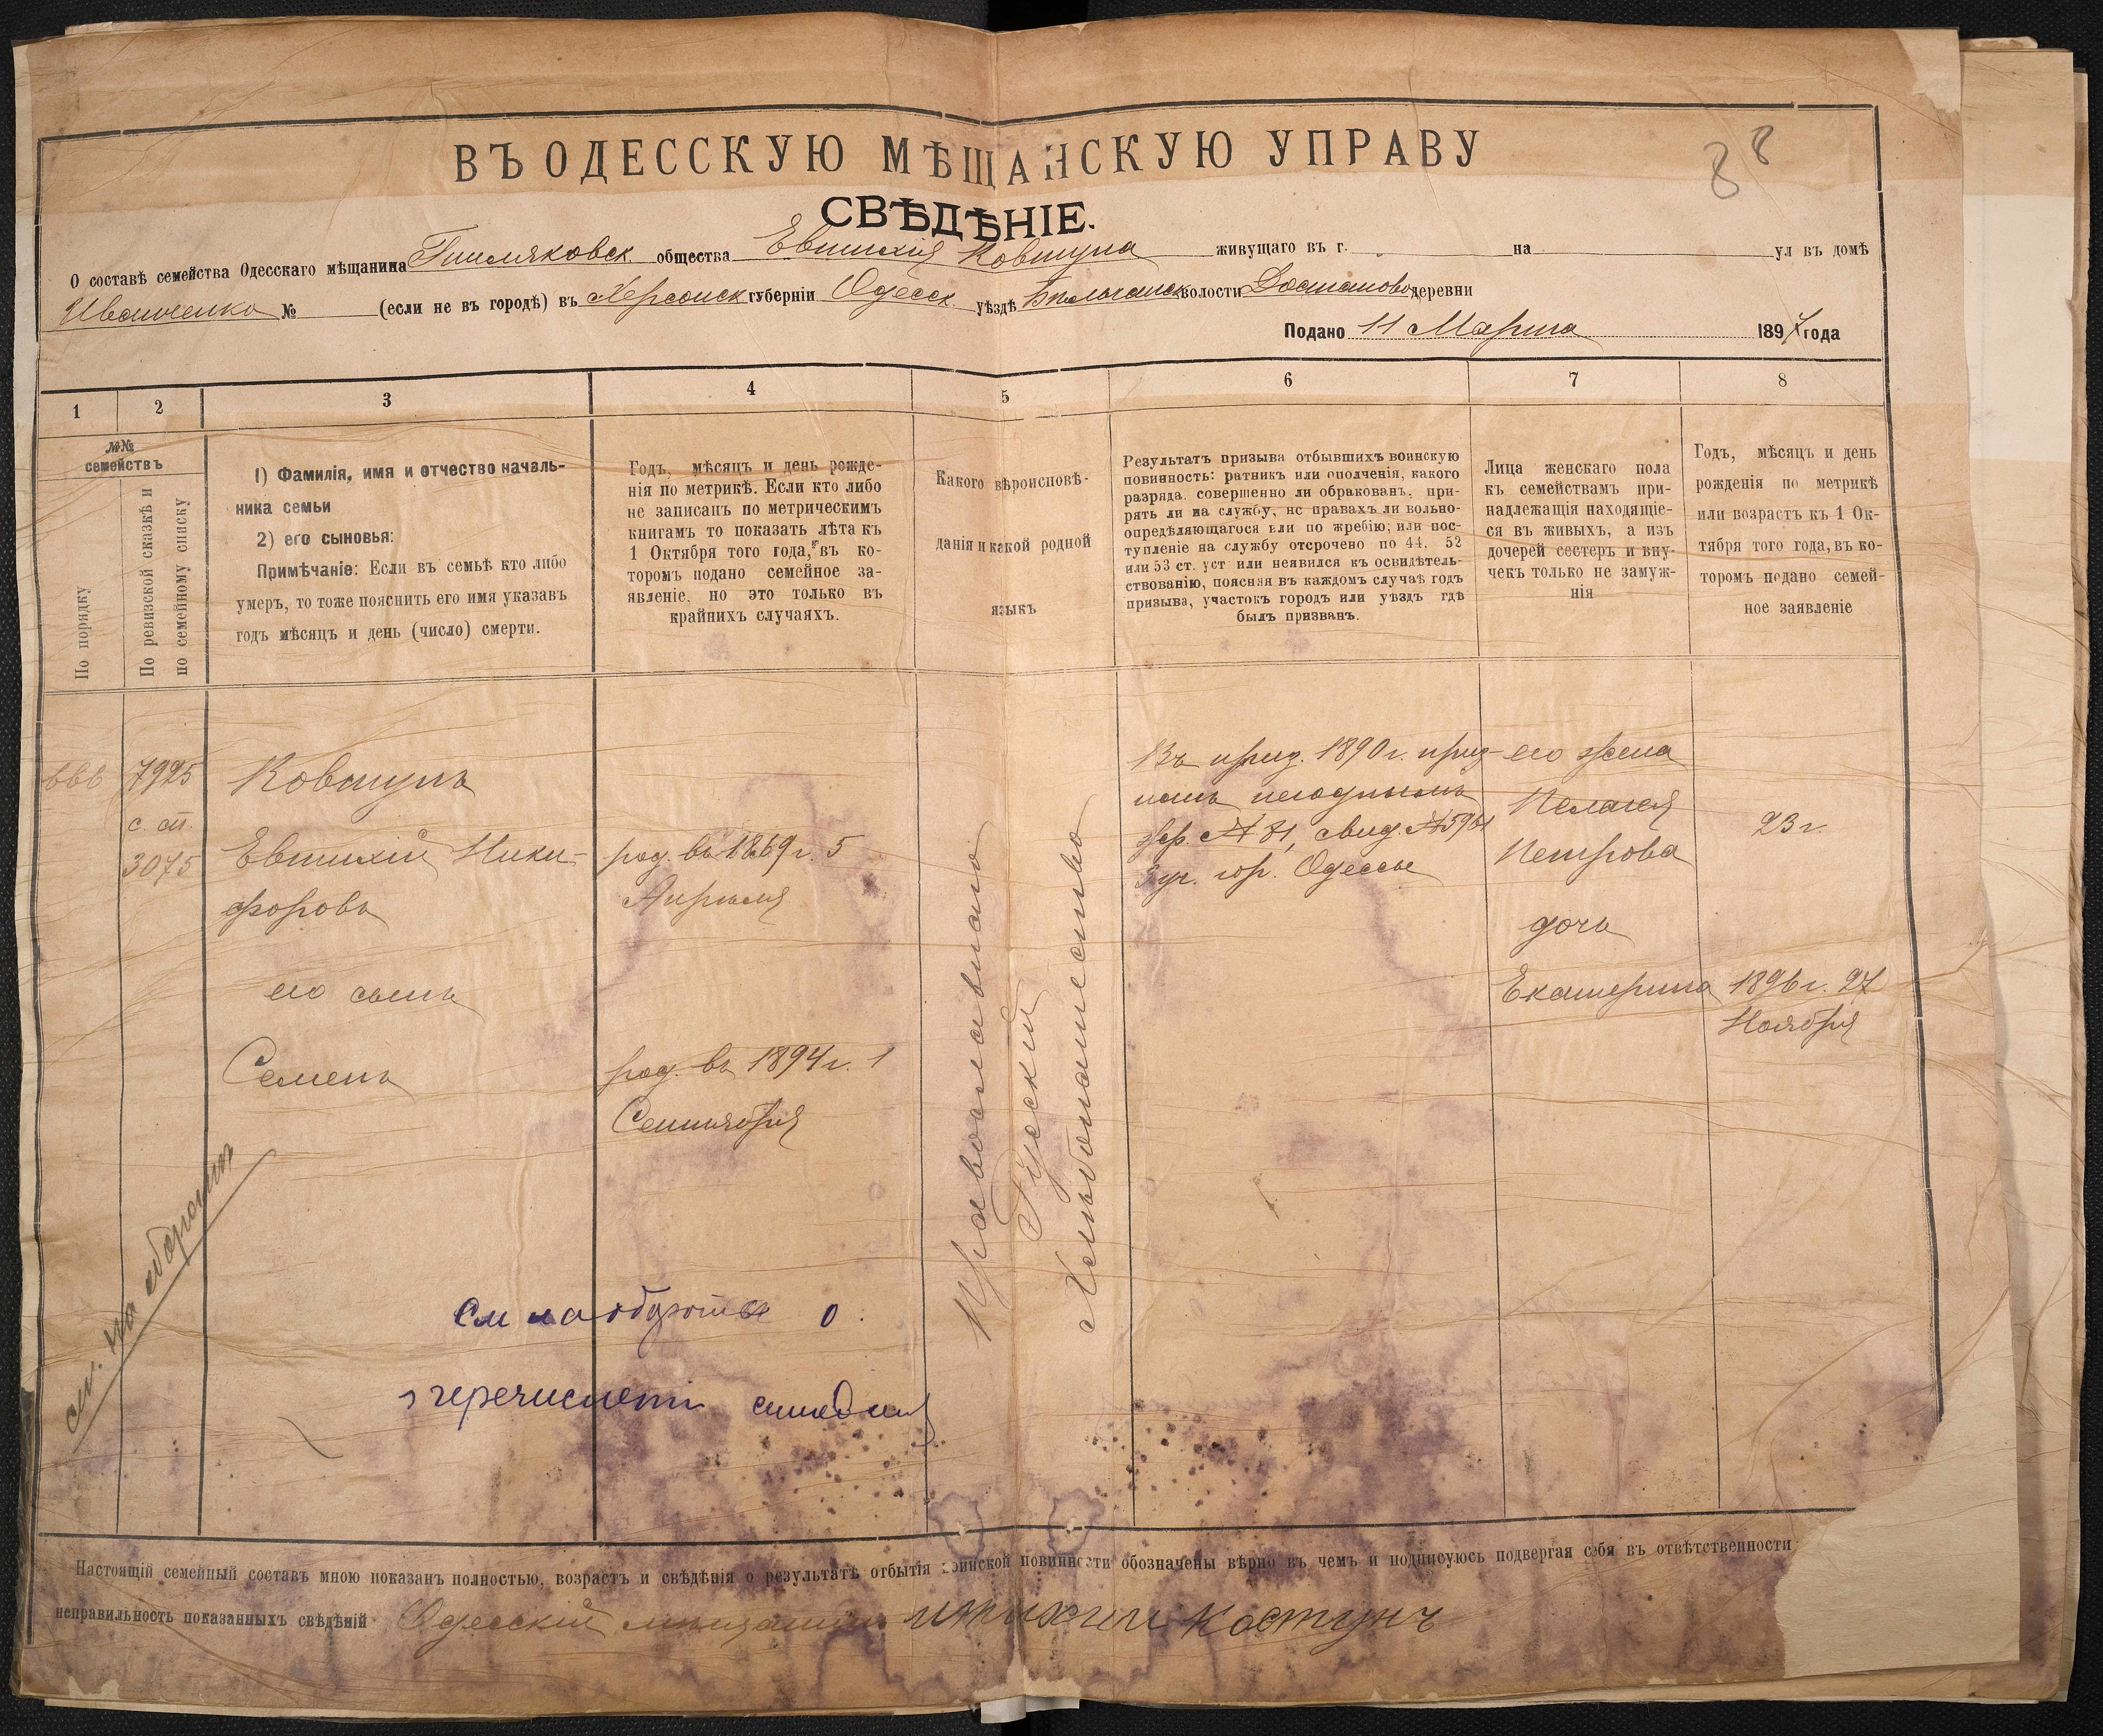 88
ВЪ ОДЕССКУЮ МѢЩАНСКУЮ УПРАВУ
СВѢДѢНІЕ.
О составѣ семейства Одесскаго мѣщанина Гниляковск. общества Евтихія Ковтуна живущаго въ г. на ул въ домѣ
Иванченко № (если не въ городѣ) въ Херсонск губерніи Одесск. уѣздѣ волости деревни
Подано 11 Марта 1897 года
1 2 3 4 5 6 7 8
№№
семействъ
По порядку
По ревизской сказкѣ и
по семейному списку
1) Фамилія, имя и отчество началь-
ника семьи
2) его сыновья:
Примѣчаніе: Если въ семьѣ кто либо
умеръ, то тоже пояснить его имя указавъ
годъ мѣсяцъ и день (число) смерти.
Годъ, мѣсяцъ и день рожде-
нія по метрикѣ. Если кто либо
не записанъ по метрическимъ
книгамъ то показать лѣта къ
1 Октября того года, въ ко-
торомъ подано семейное за-
явленіе, но это только въ
крайнихъ случаяхъ.
Какого вѣроисповѣ-
данія и какой родной
языкъ
Результатъ призыва отбывшихъ воинскую
повинность: ратникъ или ополченія, какого
разряда. совершенно ли обракованъ, при-
рять ли на службу, нс правахъ ли вольно-
опредѣляющагося или по жребію; или пос-
тупленіе на службу отсрочено по 44, 52
или 53 ст. уст или неявился къ освидѣтель-
ствованію, поясняя въ каждомъ случаѣ годъ
призыва, участокъ городъ или уѣздъ гдѣ
былъ призванъ.
Лица женскаго пола
къ семействамъ при-
надлежащія находящіе-
ся въ живыхъ, а изъ
дочерей сестеръ и вну-
чекъ только не замуж-
нія
Годъ, мѣсяцъ и день
рожденія по метрикѣ
или возрастъ къ 1 Ок-
тября того года, въ ко-
торомъ подано семей-
ное заявленіе
7925
с. сп.
3075
Ковтунъ
Евтихій Ники-
форовъ
его сынъ
Семенъ
род. въ 1869 г. 5
Апрѣля
род. въ 1894 г. 1
Сентября
Православнаго
Русскій
Хлѣбопашество
Въ приз. 1890 г. приз-
нанъ негоднымъ
жр. № 81, свид. №
3 уч. гор. Одессы
его жена
Пелагея
Петрова
дочь
Екатерина
23 г.
1896 г. 27
Ноября
см. на оборотѣ
См на оборотѣ о
перечисленіи
Настоящій семейный составъ мною показанъ полностью, возрастъ и свѣдѣнія о результатѣ отбытія воинской повинности обозначены вѣрно въ чемъ и подписуюсь подвергая себя въ отвѣтственности
неправильность показанныхъ свѣдѣній Одесскій мѣщанинъ Ковтунъ